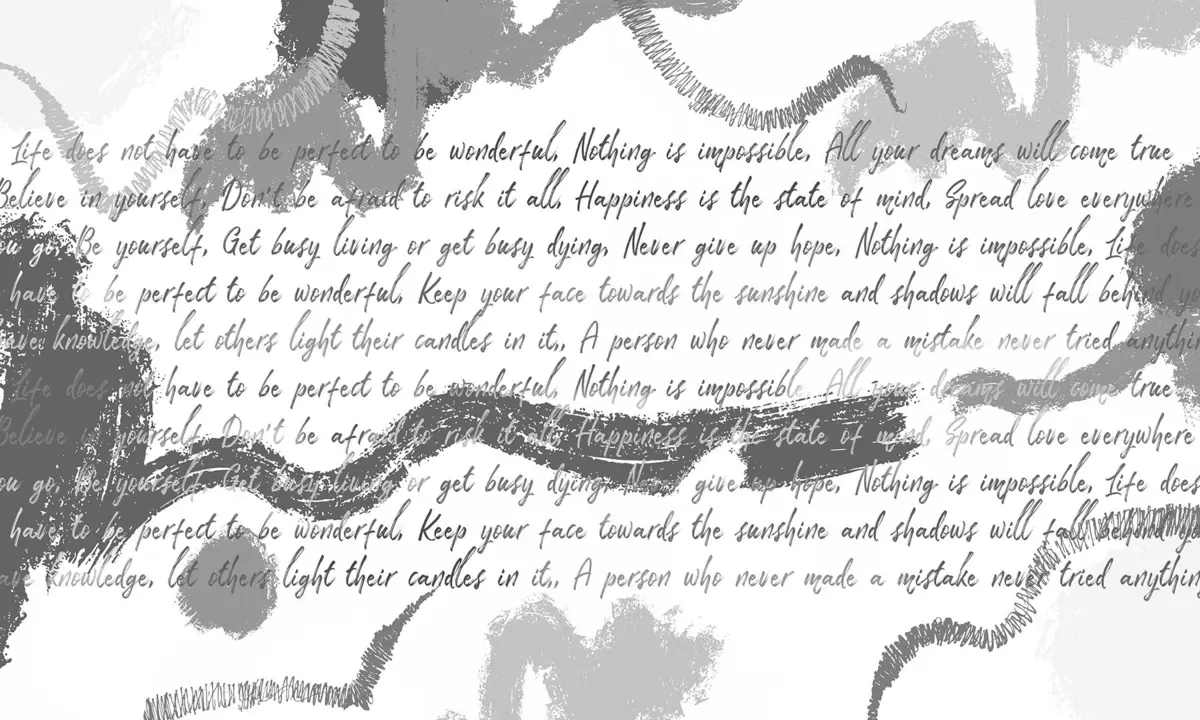 Life does not have to be perfect to be wonderful, Nothing is impossible, All your dreams will come true
Believe in yourself, Don't be afraid to risk it all, Happiness is the state of mind, Spread love everywhere
ou go, Be yourself, Get busy living or get busy dying, Never give up hope, Nothing is impossible, Life does
have to be perfect to be wonderful, Keep your face towards the sunshine and shadows will fall behind yo
ave knowledge, let others light their candles in it,, A person who never made a mistake never tried anythin
Life does not have to be perfect to be wonderful, Nothing is impossible, All your dreams will come true
Believe in yourself, Don't be afraid to risk it all, Happiness is the state of mind, Spread love everywhere
ou go, Be yourself, Get busy living or get busy dying, Never give up hope, Nothing is impossible, Life does
have to be perfect to be wonderful, Keep your face towards the sunshine and shadows will fall behind yo
ave knowledge, let others light their candles in it,, A person who never made a mistake never tried anything